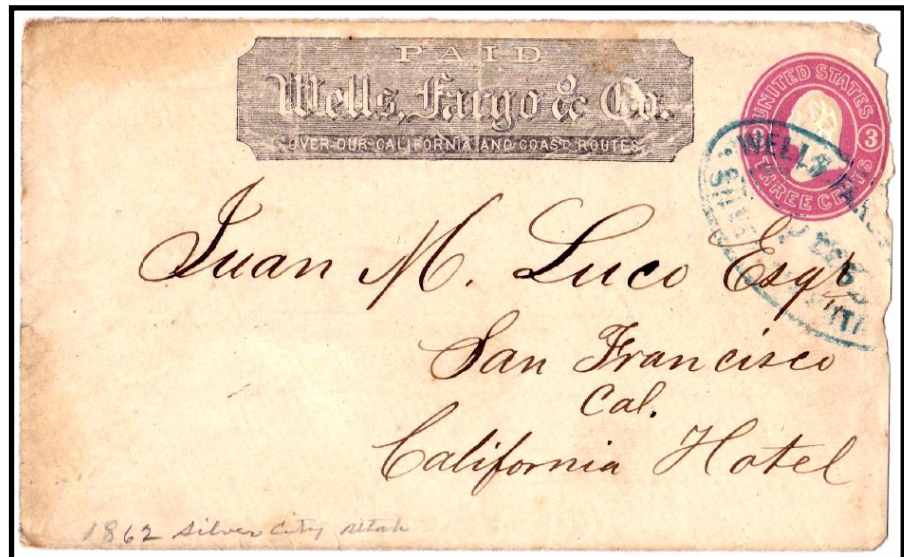 PAID
Wells, Fargo & Co.
OVER OUR CALIFORNIA AND COAST ROUTES.
UNITED STATES
3 3
THREE CENTS
WELLS
Juan M. Luco Esqr
San Francisco
Cal.
California Hotel
1862 Silver City Utah